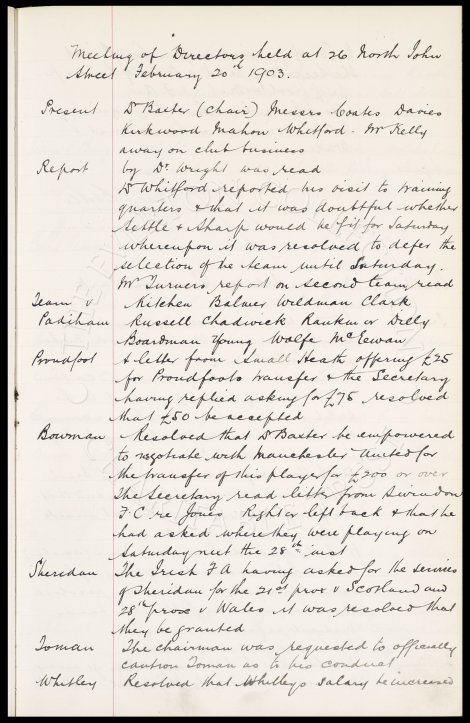 Meeting of Directors held at 26 North John
Street February 20th 1903.
Present Dr Baxter (Chair) Messrs Coates Davies
Kirkwood Mahon Whitford. Mr Kelly
away on club business
Report by Dr Wright was read
Dr Whitford reported his visit to training
quarters & that it was doubtful whether
Settle & Sharp would be fit for Saturday
whereupon it was resolved to defer the
selection of the team until Saturday.
Mr Turners report on second team read
Team v Kitchen Balmer Wildman Clark
Padiham Russell Chadwick Rankine Dilly
Boardman Young Wolfe McEwan
Proudfoot A letter from Small Heath offering £25
for Proudfoots transfer & the Secretary
having replied asking for £75 resolved
that £50 be accepted
Bowman Resolved that Dr Baxter be empowered
to negotiate with Manchester United for
the transfer of this player for £200 or over
The Secretary read letter from Swindon
F.C re Jones Right or left back & that he
had asked where they were playing on
Saturday next the 28th inst
Sheridan The Irish F A having asked for the services
of Sheridan for the 21st prox v Scotland and
28th prox v Wales it was resolved that
they be granted
Toman The Chairman was requested to officially
caution Toman as to his conduct
Whitley Resolved that Whitleys salary be increased